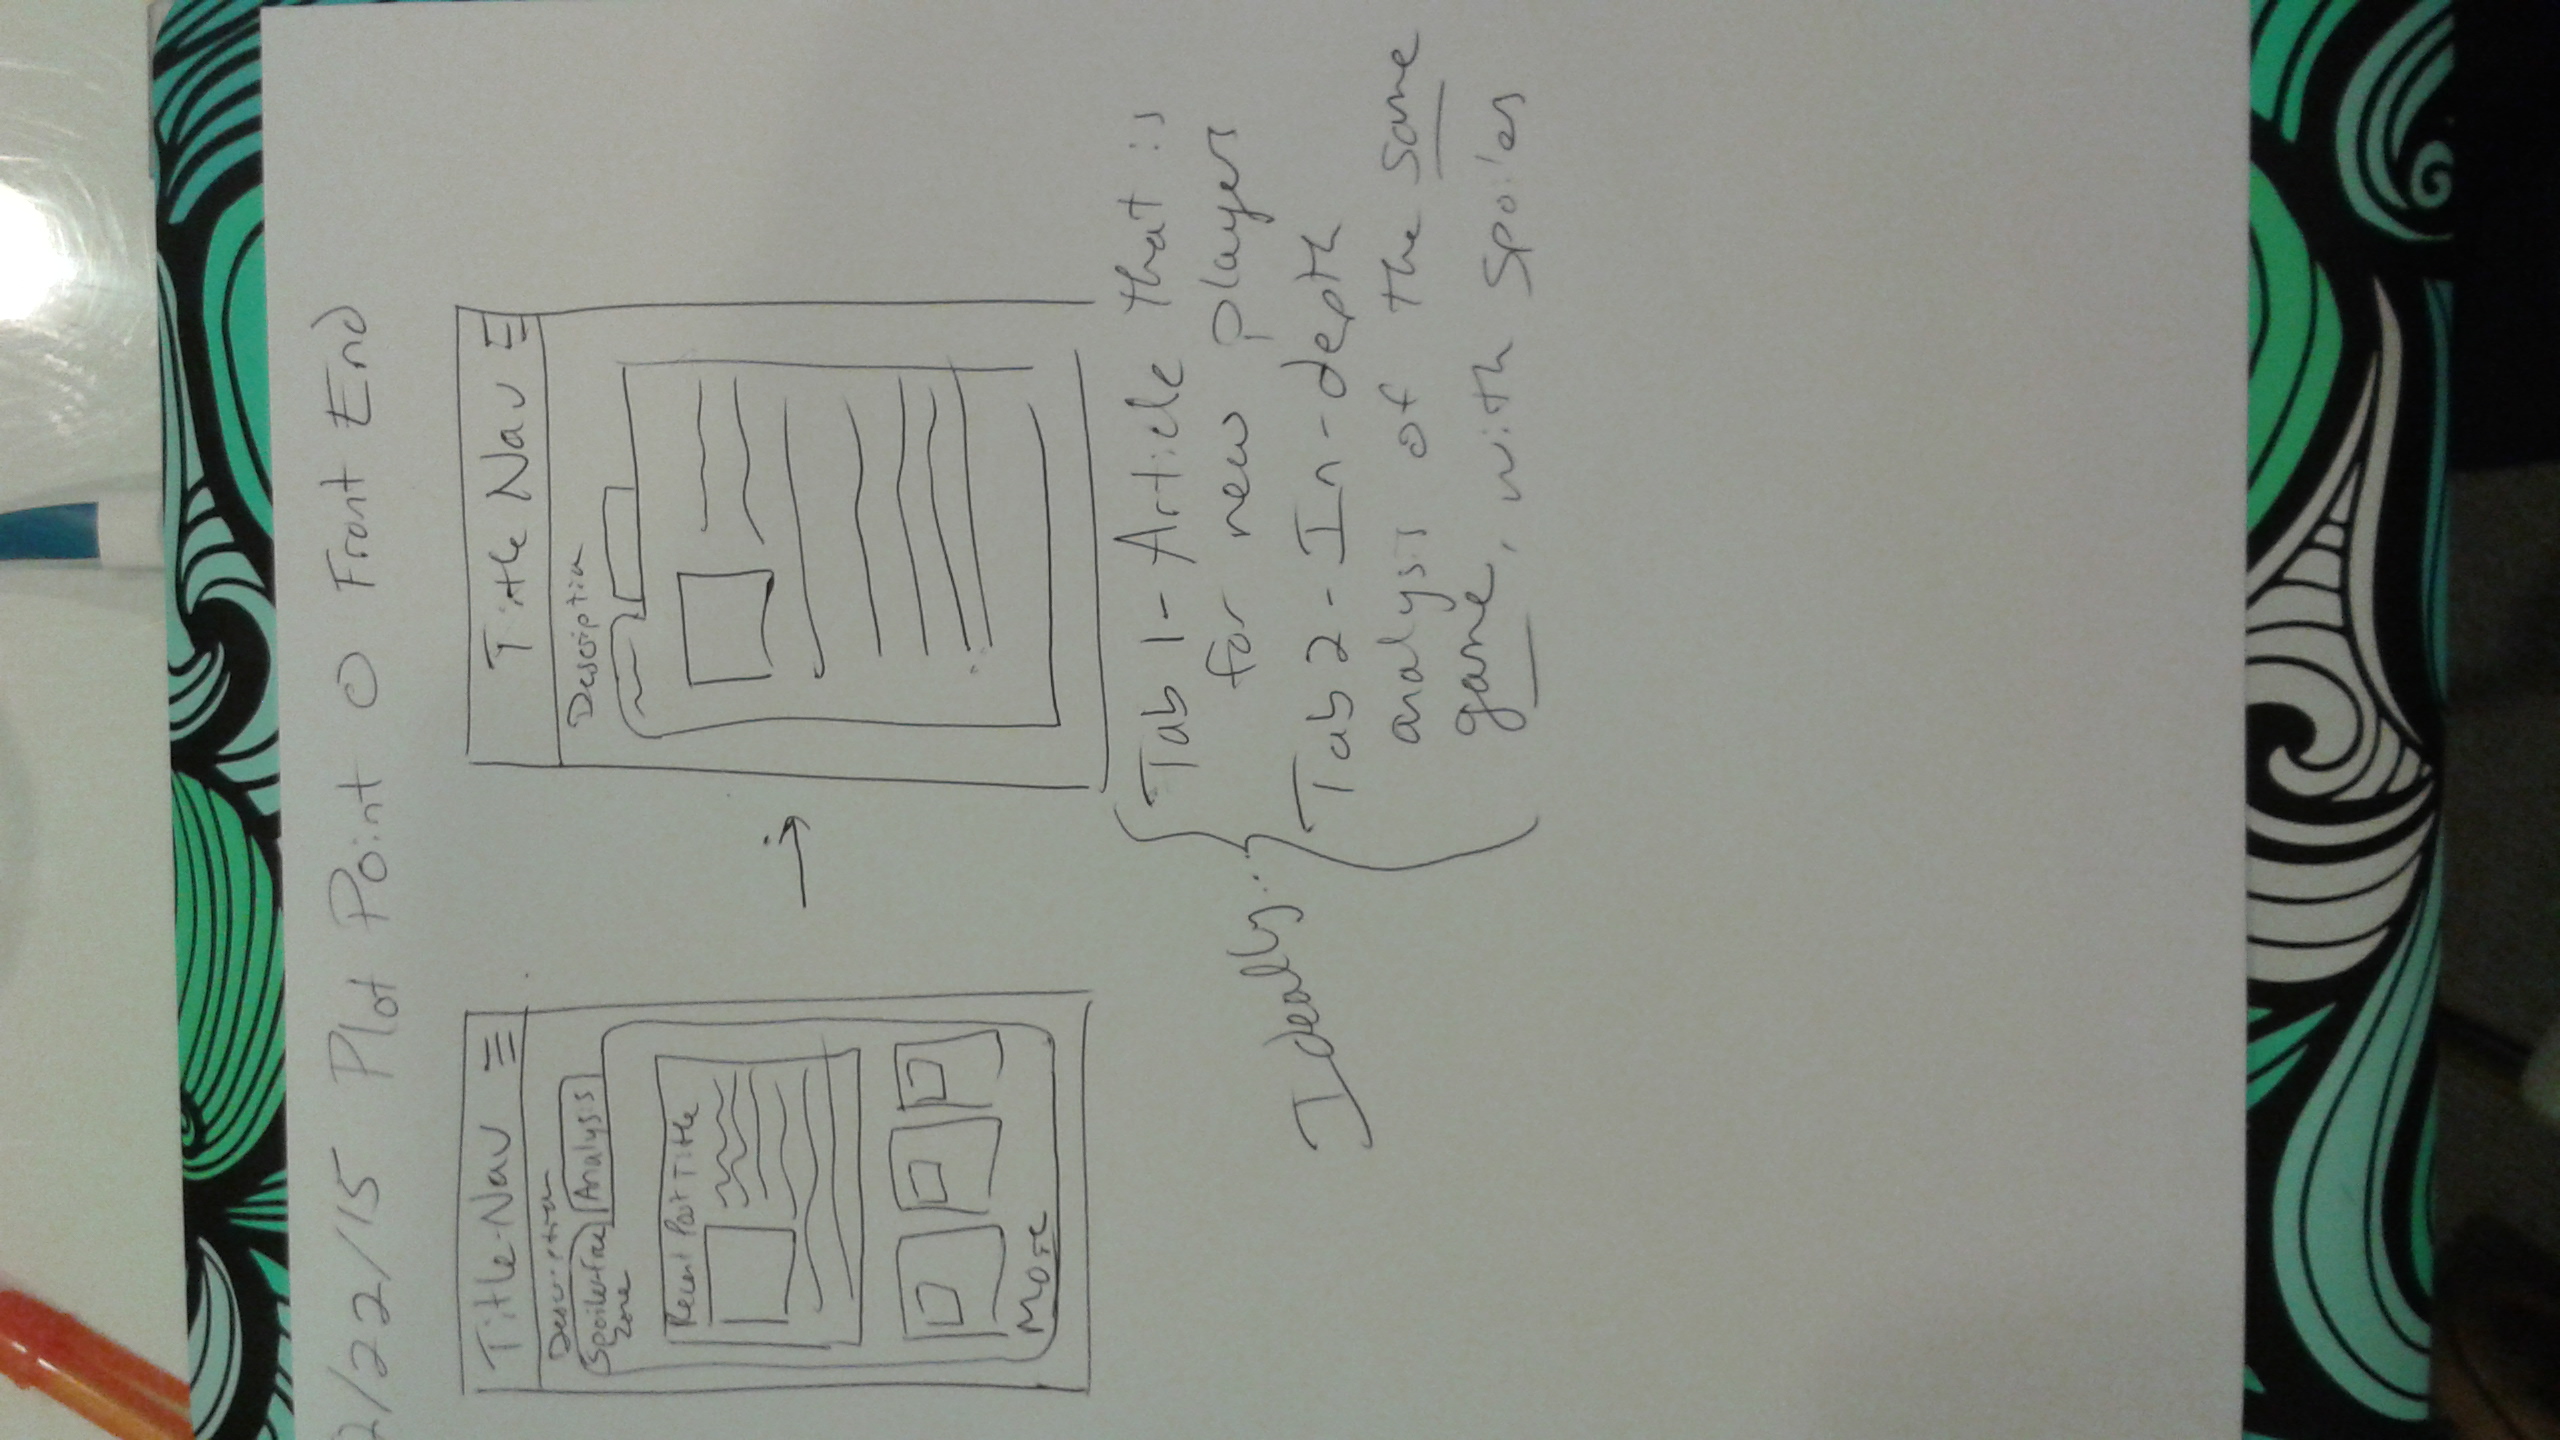 2/22/15 Plot Point O Front End
Title-Nav
Description
Spoiler-free Analysis
Zone
Recent Post Title
More
Title Nav
Description
Ideally...
Tab 1 - Article that is
for new players
Tab 2 - In-depth
analysis of the same
game, with spoilers